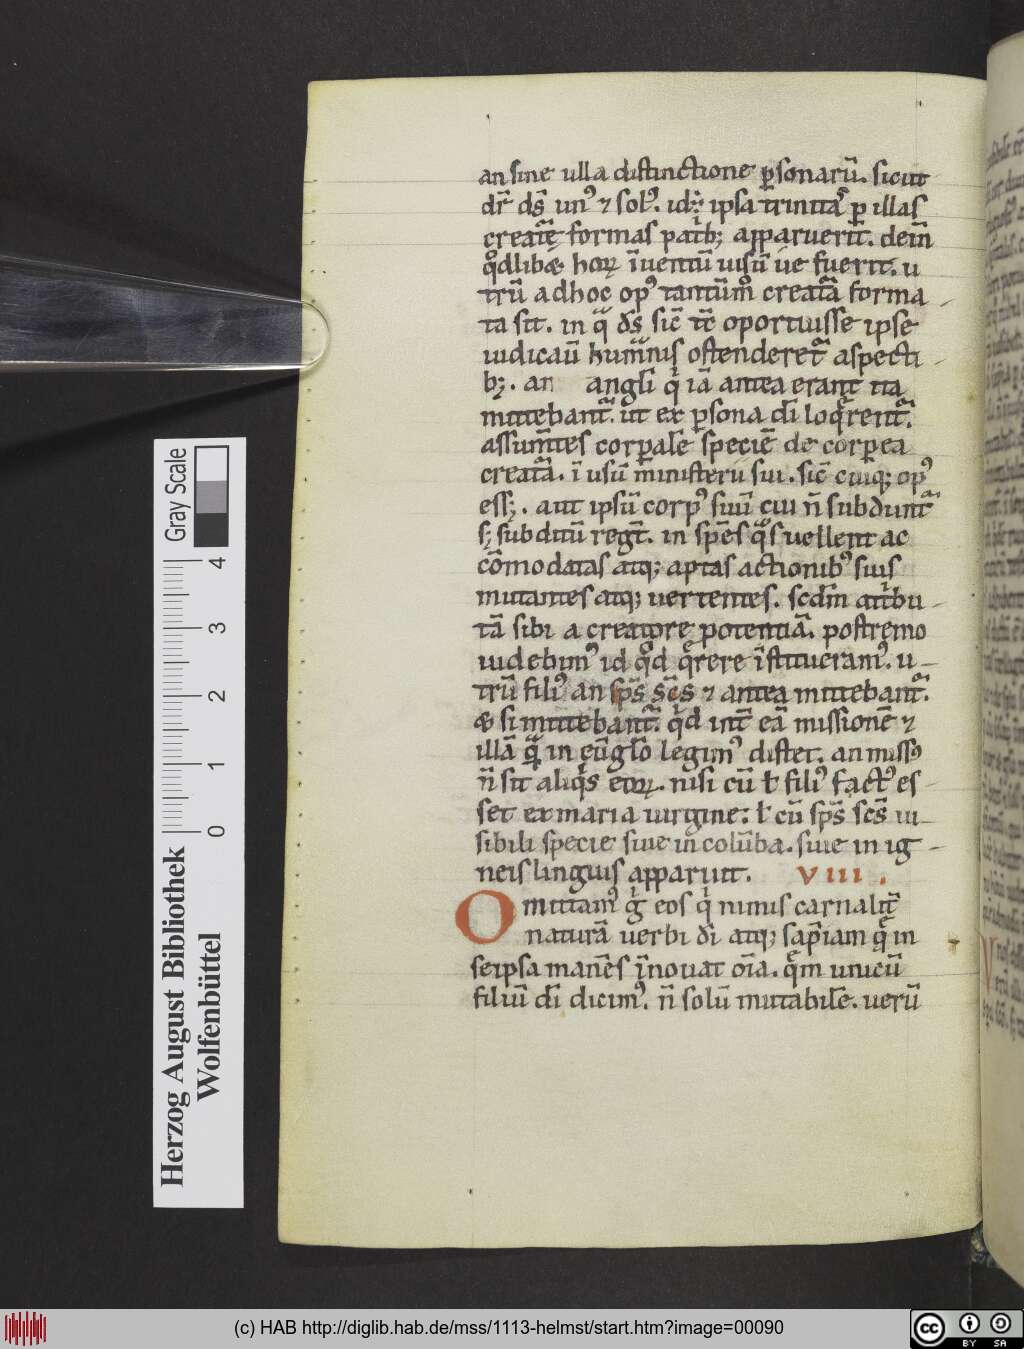 an sine ulla distinctione ꝑsonarū. sicut
dr̄ ds̄ unꝰ ⁊ solꝰ. ipsa trinitas ꝑ illas
creatę formas patrib; apparuerit. dein
qͦdlibet hoꝝ īuentū uisū ue fuerit. u
trū ad hoc opꝰ tantūm creata forma
ta sit. in q ds̄ sic̄ tc̄ oportuisse ipse
iudicauit humanis ostenderet᷑ aspecti
b;. an angli qͥ iā antea erant ita
mittebant᷑. ut ex ꝑsona dī loquerent᷑.
assumētes corꝑalē speciē de corꝑea
creatā. ī usū ministerii sui. sic̄ cuiq; opꝰ
ess;. aut ipsū corpꝰ suū cui n̄ subdunt᷑
s; subditū regt̄. in spēs q̄s uellent ac
cōmodatas atq; aptas actionibꝰ suis
mutantes atq; uertentes. scdm̄ attribu
tā sibi a creatore potentiā. postremo
uidebimꝰ id qͦd q̄rere īstitueramꝰ. u
trū filiꝰ an sp̄s sc̄s ⁊ antea mittebant᷑.
et si mittebant᷑. qͥd int̄ eā missionē ⁊
illā q̄ in euglō legimꝰ distet. an missꝰ
n̄ sit aliqͥs eoꝝ. nisi cū ł filiꝰ factꝰ es
set ex maria uirgine: ł cū sp̄s sc̄s ui
sibili specie siue in colūba. siue in ig
neis linguis apparuit. VIII.
Omittamꝰ gͥ eos qͥ nimis carnalit̄
naturā uerbi dī atq; sapiam q̄ in
seipsa manēs īnouat oīa. q̄m unicū
filiū dī dicimꝰ. n̄ solū mutabilē. uerū
Gray Scale
0 1 2 3 4
Herzog August Bibliothek
Wolfenbüttel
(c) HAB http://diglib.hab.de/mss/1113-helmst/start.htm?image=00090
cc BY SA